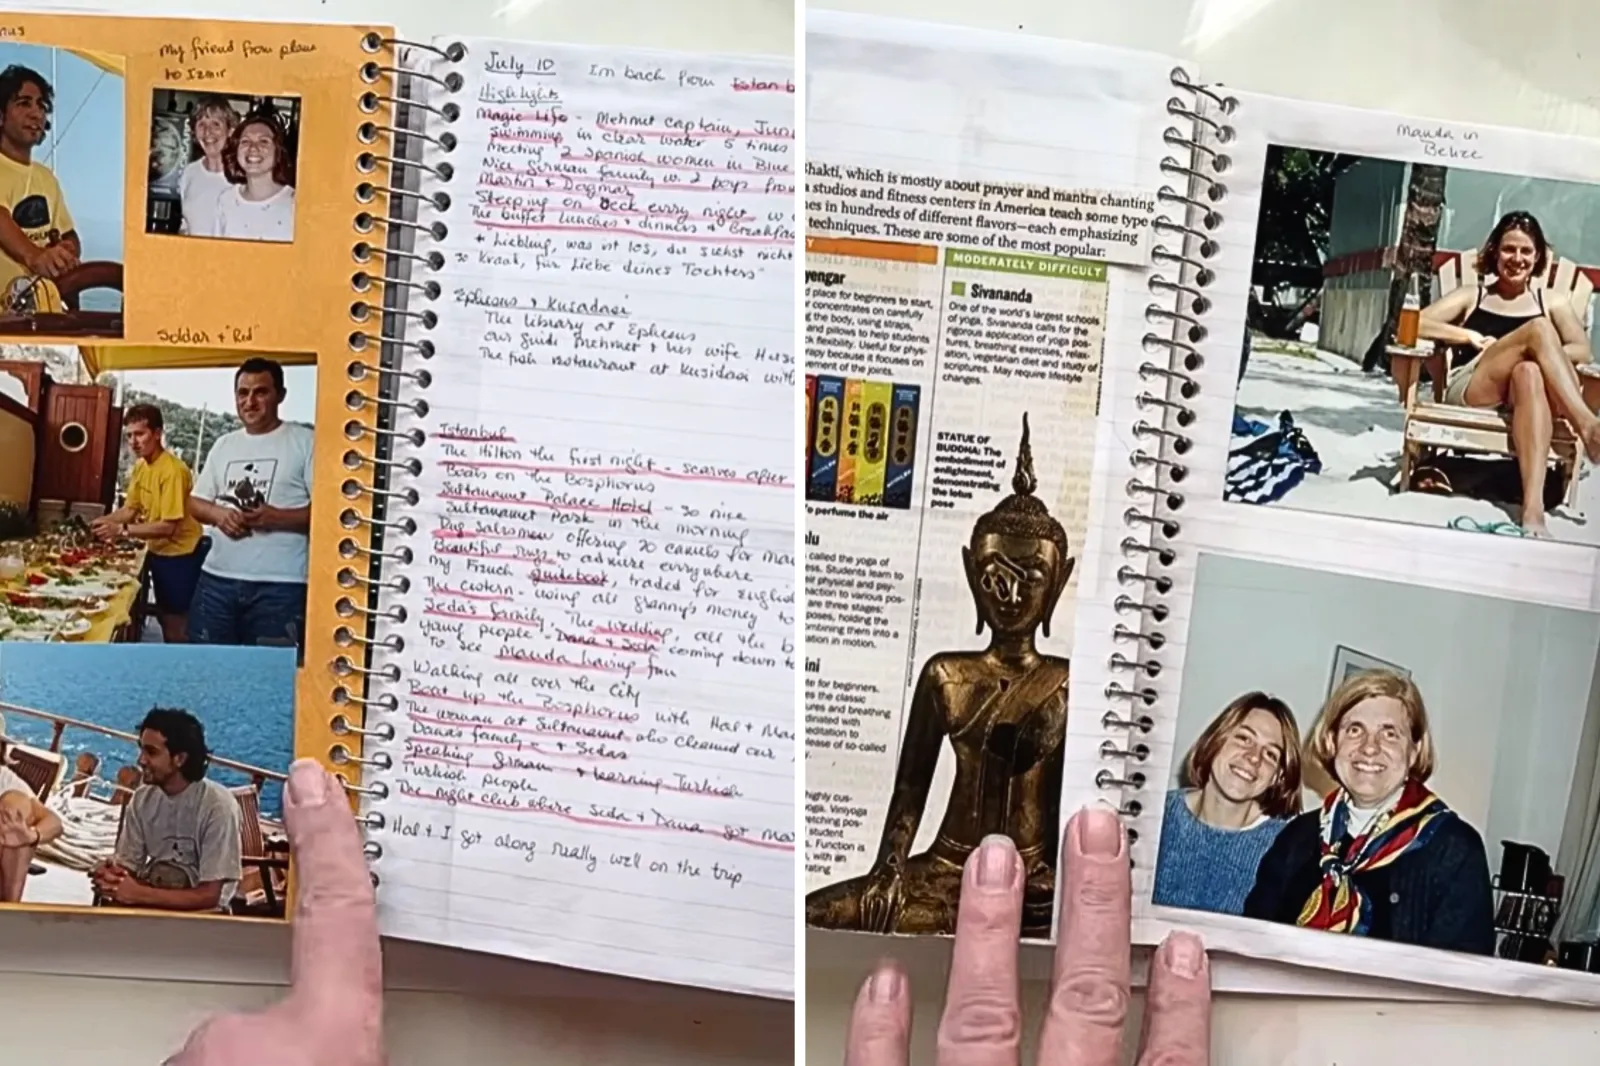 My friend from plane
to Izmir
Soldar + "Red"
July 10 Im back from Istanb
Highlights
Magic Life - Mehmet captain, Jun
Swimming in clear water 5 times
meeting 2 Spanish women in Blue
Nice German family w. 2 boys from
Martin + Dagmar
Sleeping on deck every night
The buffet lunches + dinners + Breakfas
+ "Liebling, was ist los, du siehst nicht
so krank, für Liebe deines Tochters"
Ephesus + Kusadasi
The library at Ephesus
our guide Mehmet + his wife
The fish restaurant at Kusidasi with
Istanbul
The Hilton the first night - scarves after
Boats on the Bosphorus
Sultanamet Palace Hotel - so nice
Sultanamet Park in the morning
Rug salesmen offering 20 camels for Man
Beautiful rugs to admire everywhere
My French guidebook, traded for English
The Cistern - using all granny's money to
Seda's family, The wedding, all the b
young people - Dana + Seda coming down to
to see Manda having fun
Walking all over the city
Boat up the Bosphorus with Hal + Ma
The woman at Sultanamet who cleaned our
Dana's family - + Sedas
Speaking German + learning Turkish
Turkish people
The night club where Seda + Dana got ma
Hal + I got along really well on the trip
hakti, which is mostly about prayer and mantra chanting
studios and fitness centers in America teach some type o
es in hundreds of different flavors—each emphasizing
techniques. These are some of the most popular:
Y
yengar
place for beginners to start,
concentrates on carefully
g the body, using straps,
and pillows to help students
k flexibility. Useful for phys-
rapy because it focuses on
vement of the joints.
MODERATELY DIFFICULT
Sivananda
One of the world's largest schools
of yoga, Sivananda calls for the
rigorous application of yoga pos-
tures, breathing exercises, relax-
ation, vegetarian diet and study of
scriptures. May require lifestyle
changes.
STATUE OF
BUDDHA: The
embodiment of
enlightment,
demonstrating
the lotus
pose
o perfume the air
lu
called the yoga of
ess. Students learn to
ir physical and psy-
action to various pos-
are three stages:
poses, holding the
mbining them into a
ation in motion.
ini
te for beginners.
es the classic
ures and breathing
dinated with
editation to
lease of so-called
highly cus-
oga. Viniyoga
etching pos-
student
s. Function is
, with an
rating
Manda in
Belize